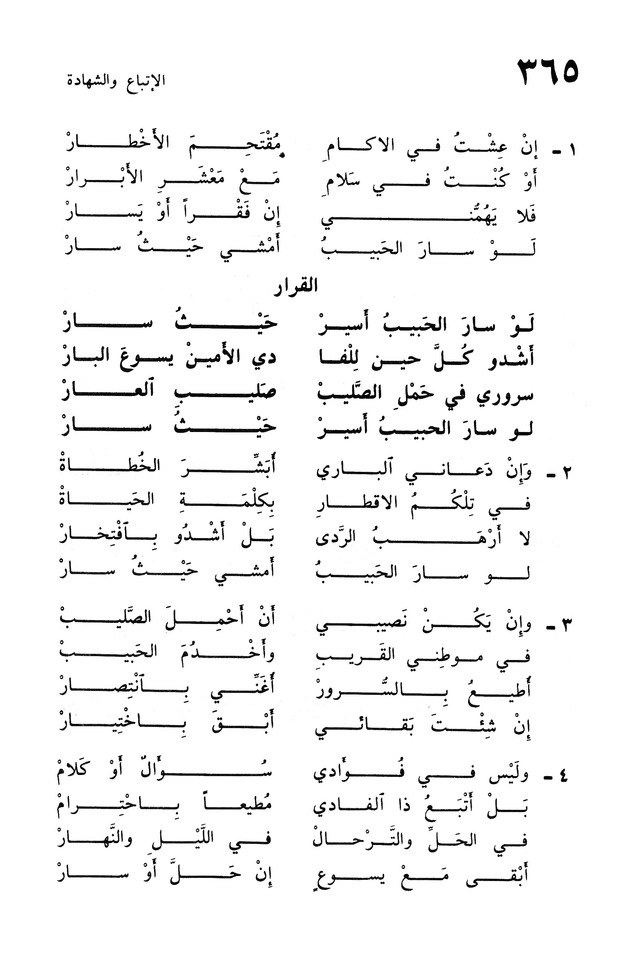 ٣٦٥
الإتباع والشهادة
١ - إنْ عِشْتُ في الاكامِ مُقْتَحِمَ الأَخْطارْ
أوْ كُنْتُ في سَلامِ مَعْ مَعْشَرِ الأَبْرارْ
فَلا يَهُمُّني إنْ فَقْراً أوْ يَسارْ
لَوْ سارَ الحَبيبُ أَمْشي حَيْثُ سارْ
القرار
لَوْ سارَ الحَبيبُ أَسيرْ حَيْثُ سارْ
أَشْدو كُلَّ حين لِلْفا دي الأَمينْ يسوعَ البارْ
سروري في حَمْلِ الصَّليبْ صَليبِ ٱلعارْ
لو سارَ الحبيبُ أَسيرْ حَيْثُ سارْ
٢ - وَإِنْ دَعاني ٱلباري أُبَشِّرَ الخُطاةْ
في تِلْكُمُ الاقطارِ بِكِلْمَةِ الحَياةْ
لا أَرْهَبُ الرَّدى بَلْ أَشْدُو بِٱفْتِخارْ
لو سارَ الحَبيبُ أَمشي حَيْثُ سارْ
٣ - وإنْ يَكُنْ نَصيبي أَنْ أَحْمِلَ الصَّليبْ
في موطِنِي القَريبِ وأَخْدُمَ الحَبيبْ
أُطيعُ بِالسُّرورْ أُغَنِّي بِٱنْتِصارْ
إنْ شِئْتَ بَقائي أَبْقَ بِاخْتِيارْ
٤ - ولَيْس في فُؤادي سُؤالٌ أوْ كَلامْ
بَلْ أَتْبَعُ ذا ٱلفادي مُطيعاً بِاحْتِرامْ
في الحَلِّ والتَّرْحالْ في اللَّيْلِ والنَّهارْ
أَبْقى مَعْ يسوعٍ إنْ حَلَّ أوْ سارْ